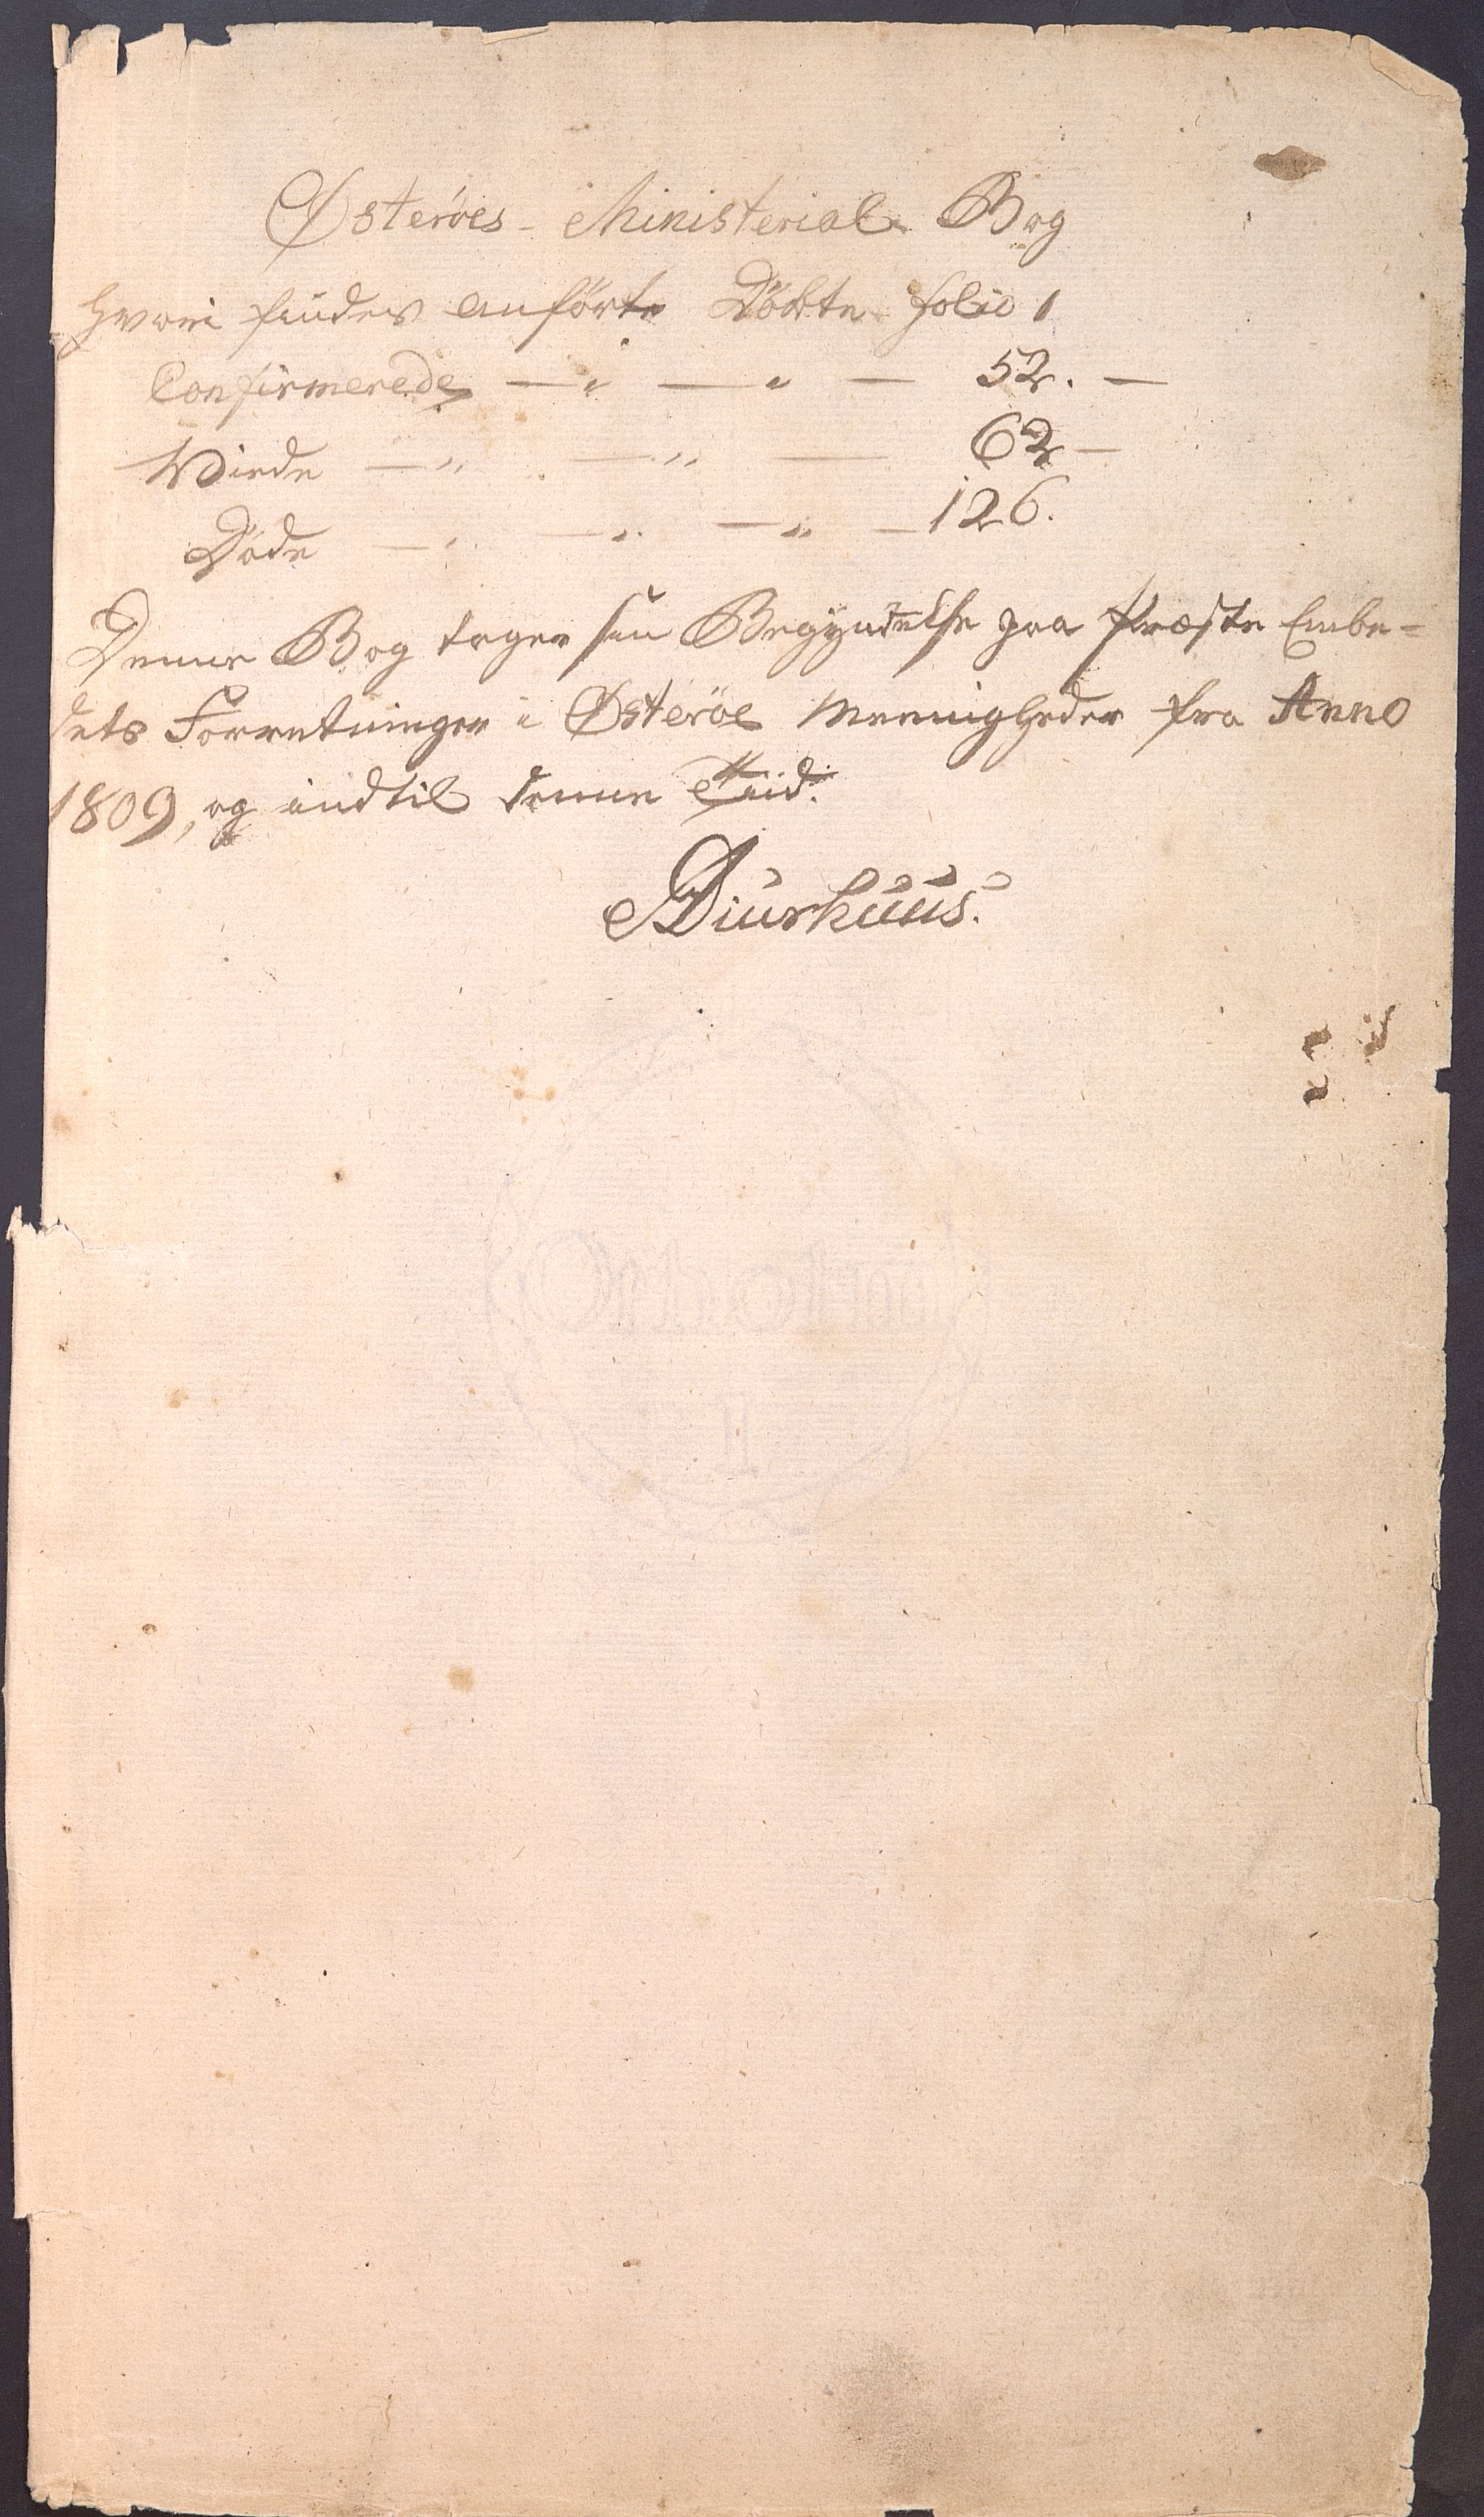 Østeröes - Ministerial Bog
hvori findes anförte Döbte folio 1
Confirmerede — " — " — 52. —
Viede — " — " — 62 —
Döde — " — " — " — 126.
Denne Bog tager sin Begyndelse paa Præste Embe=
dets Forretninger i Østeröe Meenigheder fra Anno
1809, og indtil denne Tiid.
Diurhuus.